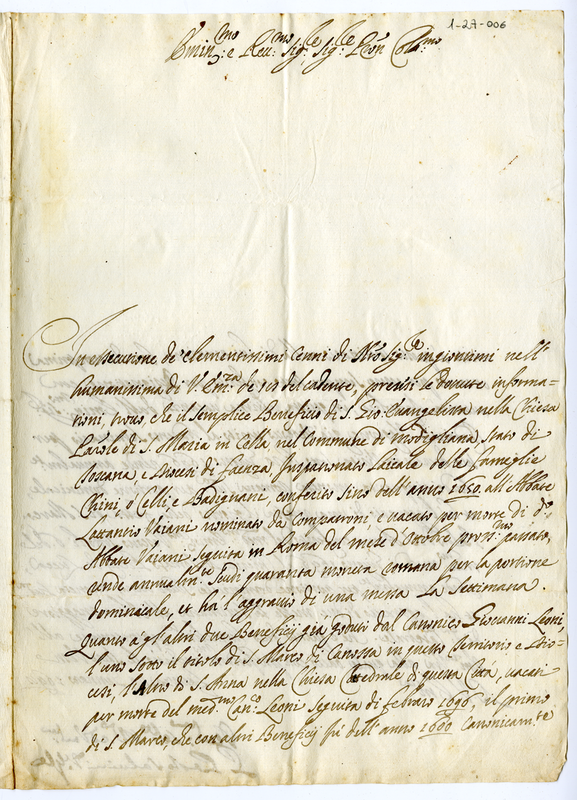 1-27-006
Emin:mo e Reu:mo Sig:re Sig:re Pron Col:mo
In essecutione de' Clementissimi Cenni di N'ro Sig:re ingiontimi nell'
humanissima di V. Em:za de del cadente, presesi le douute informa-
tioni, trouo, che il semplice Beneficio di S. Gio: Euangelista nella Chiesa
Par'le di S. Maria in Cella, nel Commune di Modigliana, Stato di
Toscana, e Diocesi di Faenza, Juspatronato Laicale delle Fameglie
Chini, ò Celli, e Padignani, conferito sino dell'anno 1650 all'Abbate
Lattantio Vaiani nominato da Compatroni, e uacato per morte di d:o
Abbate Vaiani seguita in Roma del mese d'Ottobre pron:mo passato,
rende annualm:te Scudi quaranta moneta romana per la portione
dominicale, et ha l'aggrauio di una messa La Settimana.
Quanto à gl'altri due Beneficij già goduti dal Canonico Giouanni Leoni,
l'uno sotto il titolo di S. Marco di in questo Territorio e Dio-
cesi, l'Altro di S. Anna nella Chiesa Catedrale di questa Città, uacati
per morte del med:mo Can:co Leoni seguita di febraro 1696, il primo
di S. Marco, che con altri Beneficij fù dell'anno 1680 Canonicam:te